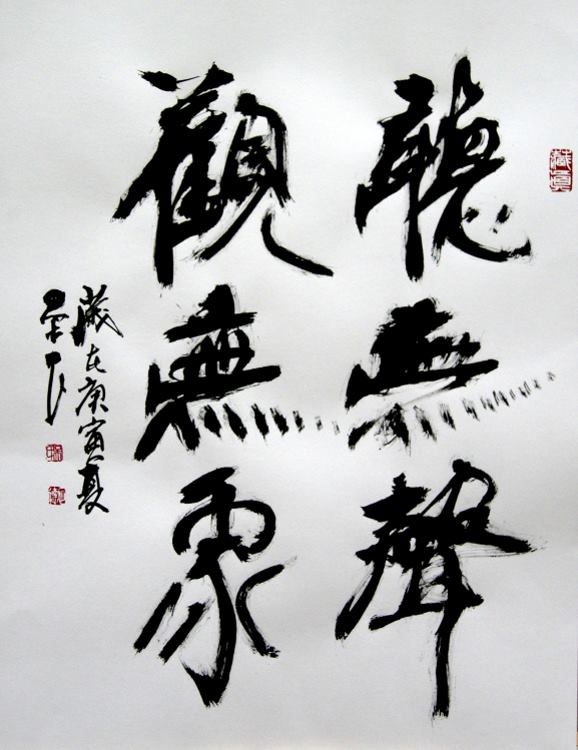 聽無聲
觀無象
歲在庚寅夏